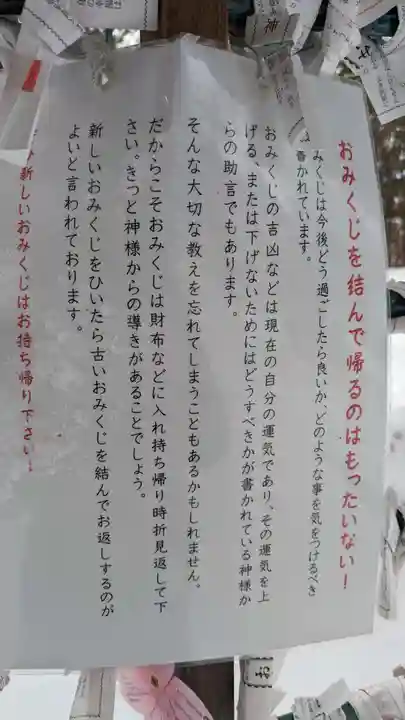 おみくじを結んで帰るのはもったいない！
みくじは今後どう過ごしたら良いか、どのような事を気をつけるべき
書かれています。
おみくじの吉凶などは現在の自分の運気であり、その運気を上
げる、または下げないためにはどうすべきかが書かれている神様か
らの助言でもあります。
そんな大切な教えを忘れてしまうこともあるかもしれません。
だからこそおみくじは財布などに入れ持ち帰り時折見返して下
さい。きっと神様からの導きがあることでしょう。
新しいおみくじをひいたら古いおみくじを結んでお返しするのが
よいと言われております。
新しいおみくじはお持ち帰り下さい！
神
お